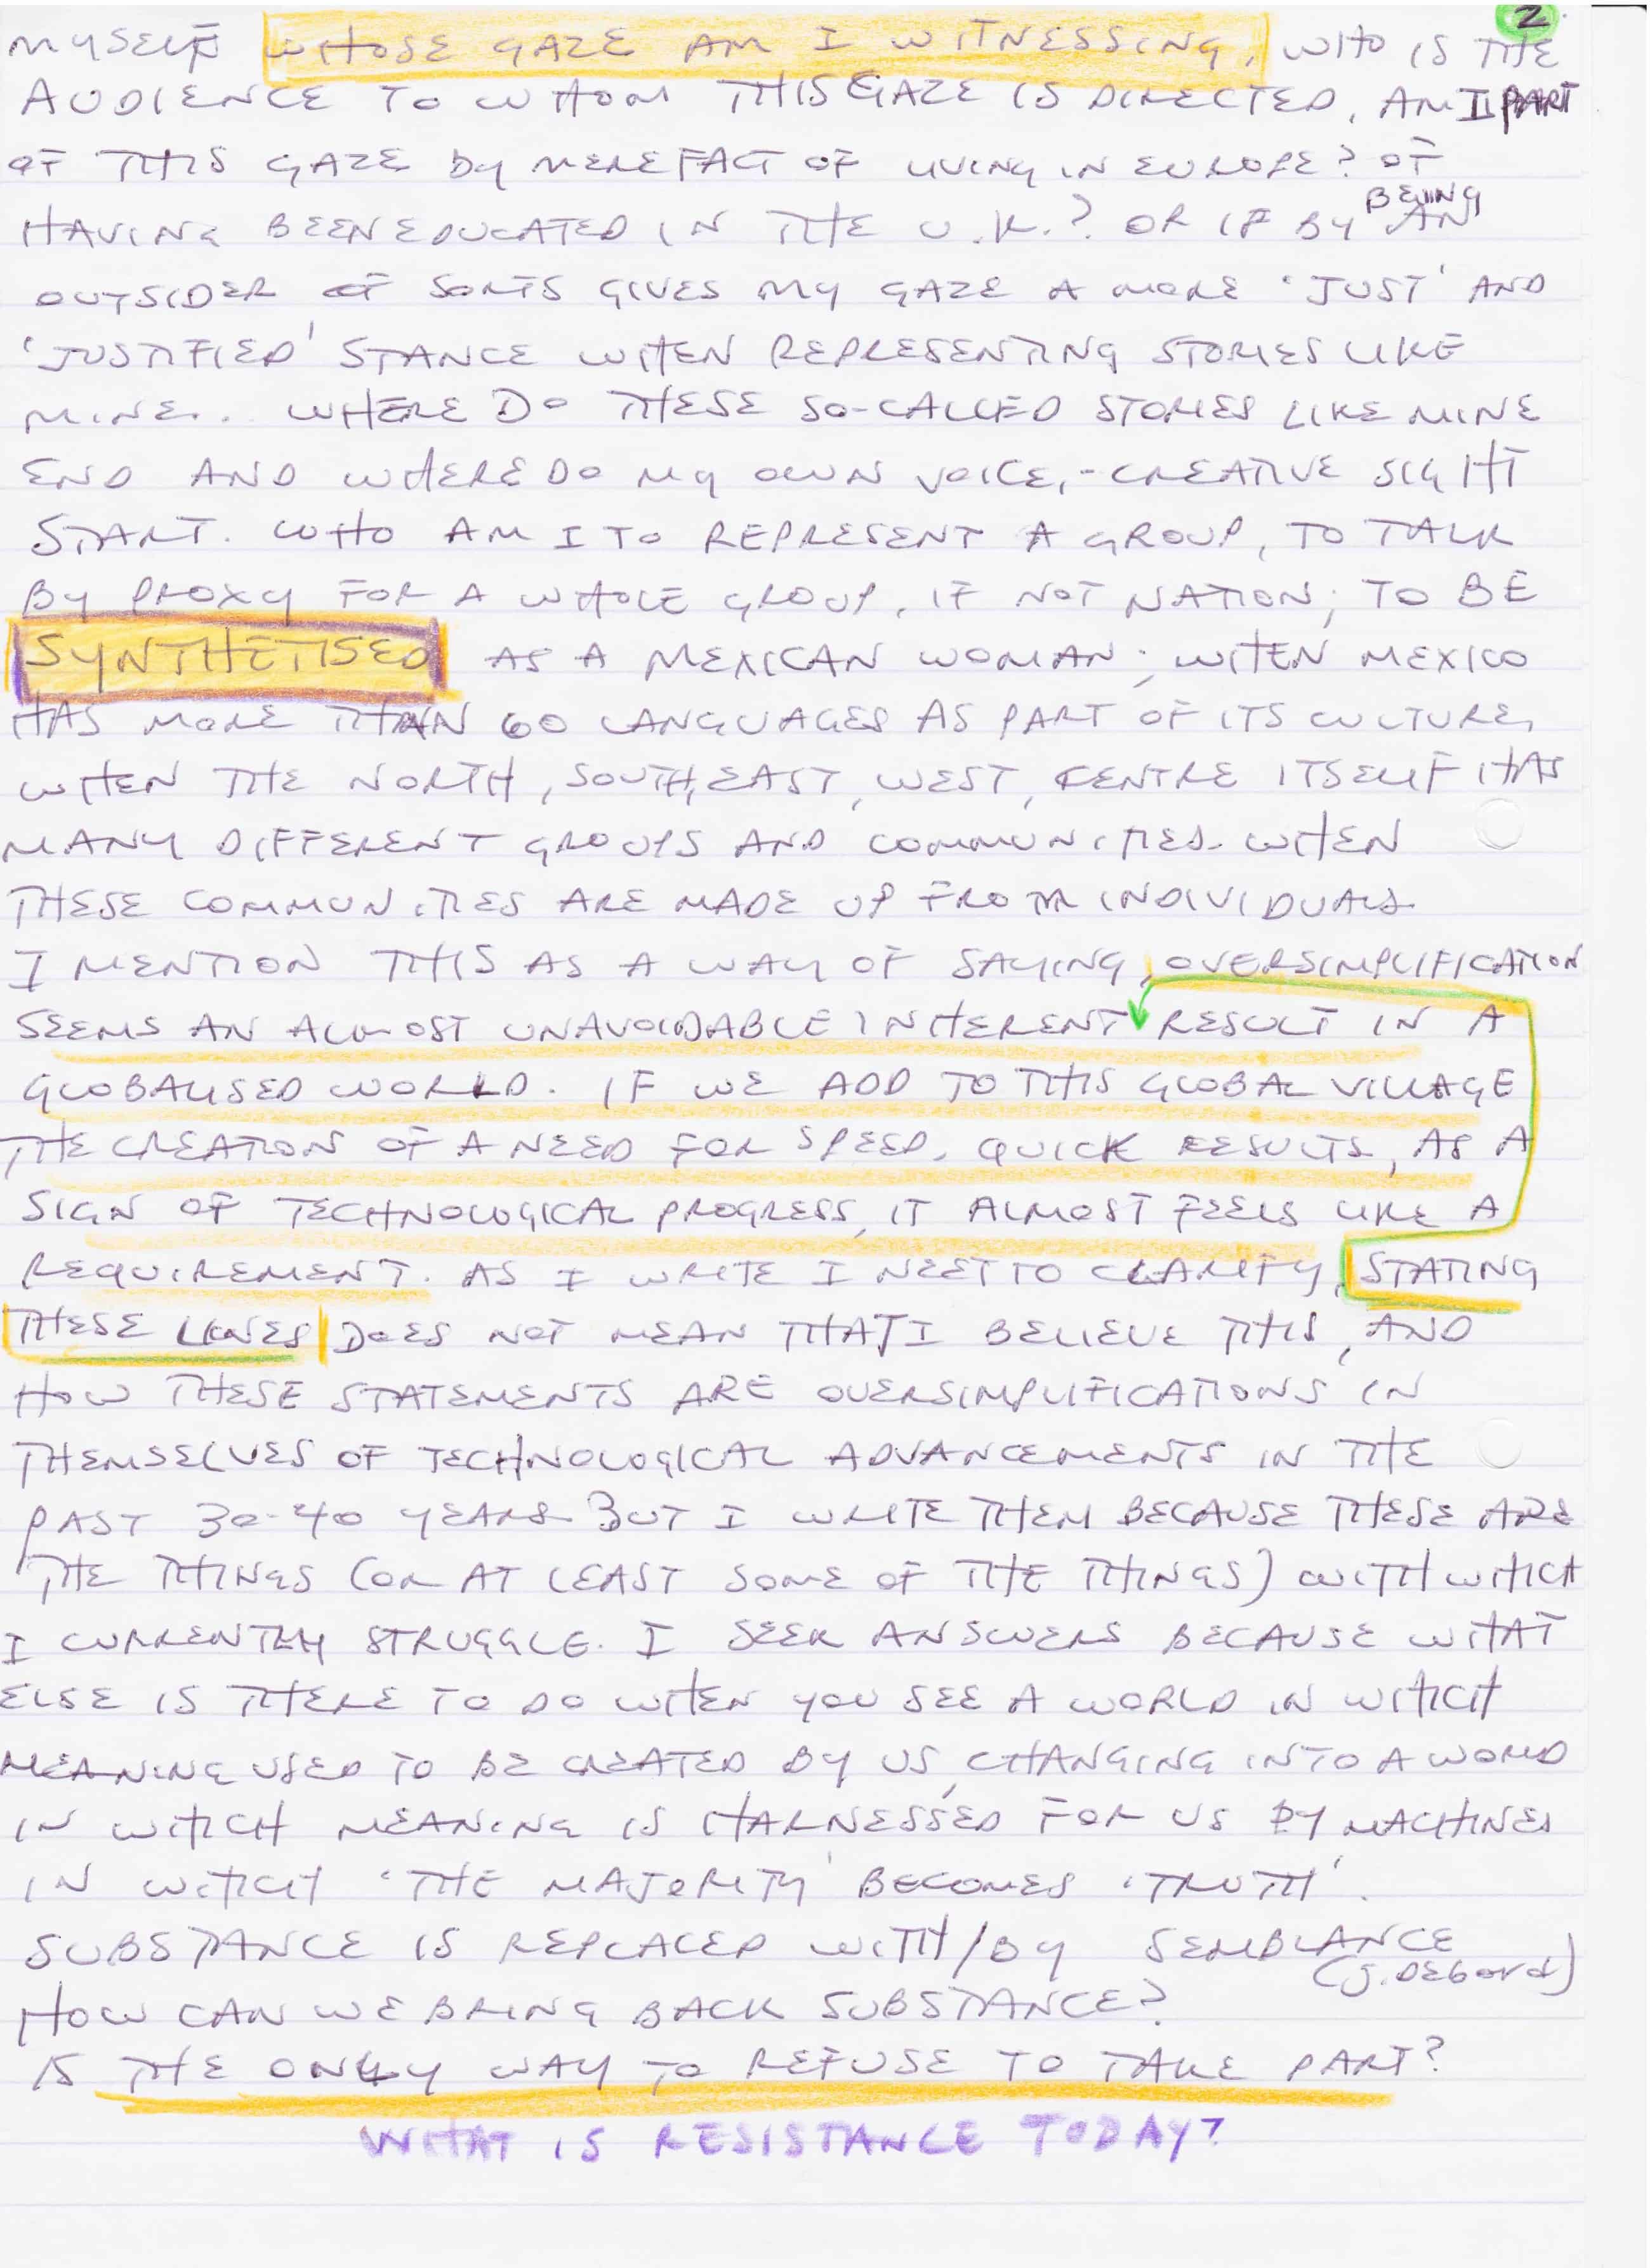 2.
MYSELF WHOSE GAZE AM I WITNESSING, WHO IS THE
AUDIENCE TO WHOM THIS GAZE IS DIRECTED, AM I PART
OF THIS GAZE BY MERE FACT OF LIVING IN EUROPE? OF
HAVING BEEN EDUCATED IN THE U.K.? OR IF BY BEING AN
OUTSIDER OF SORTS GIVES MY GAZE A MORE 'JUST' AND
'JUSTIFIED' STANCE WHEN REPRESENTING STORIES LIKE
MINE... WHERE DO THESE SO-CALLED STORIES LIKE MINE
END AND WHERE DO MY OWN VOICE,-CREATIVE SIGHT
START. WHO AM I TO REPRESENT A GROUP, TO TALK
BY PROXY FOR A WHOLE GROUP, IF NOT NATION; TO BE
SYNTHETISED AS A MEXICAN WOMAN; WHEN MEXICO
HAS MORE THAN 60 LANGUAGES AS PART OF ITS CULTURE,
WHEN THE NORTH, SOUTH, EAST, WEST, CENTRE ITSELF HAS
MANY DIFFERENT GROUPS AND COMMUNITIES. WHEN
THESE COMMUNITIES ARE MADE UP FROM INDIVIDUALS.
I MENTION THIS AS A WAY OF SAYING, OVERSIMPLIFICATION
SEEMS AN ALMOST UNAVOIDABLE INHERENT RESULT IN A
GLOBALISED WORLD. IF WE ADD TO THIS GLOBAL VILLAGE
THE CREATION OF A NEED FOR SPEED, QUICK RESULTS, AS A
SIGN OF TECHNOLOGICAL PROGRESS, IT ALMOST FEELS LIKE A
REQUIREMENT. AS I WRITE I NEET TO CLARIFY, STATING
THESE LINES DOES NOT MEAN THAT I BELIEVE THIS, AND
HOW THESE STATEMENTS ARE OVERSIMPLIFICATIONS IN
THEMSELVES OF TECHNOLOGICAL ADVANCEMENTS IN THE
PAST 30-40 YEARS. BUT I WRITE THEM BECAUSE THESE ARE
THE THINGS (OR AT LEAST SOME OF THE THINGS) WITH WHICH
I CURRENTLY STRUGGLE. I SEEK ANSWERS BECAUSE WHAT
ELSE IS THERE TO DO WHEN YOU SEE A WORLD IN WHICH
MEANING USED TO BE CREATED BY US, CHANGING INTO A WORLD
IN WHICH MEANING IS HARNESSED FOR US BY MACHINES
IN WHICH 'THE MAJORITY' BECOMES 'TRUTH'.
SUBSTANCE IS REPLACED WITH/BY SEMBLANCE
(J. DEBORD)
HOW CAN WE BRING BACK SUBSTANCE?
IS THE ONLY WAY TO REFUSE TO TAKE PART?
WHAT IS RESISTANCE TODAY?